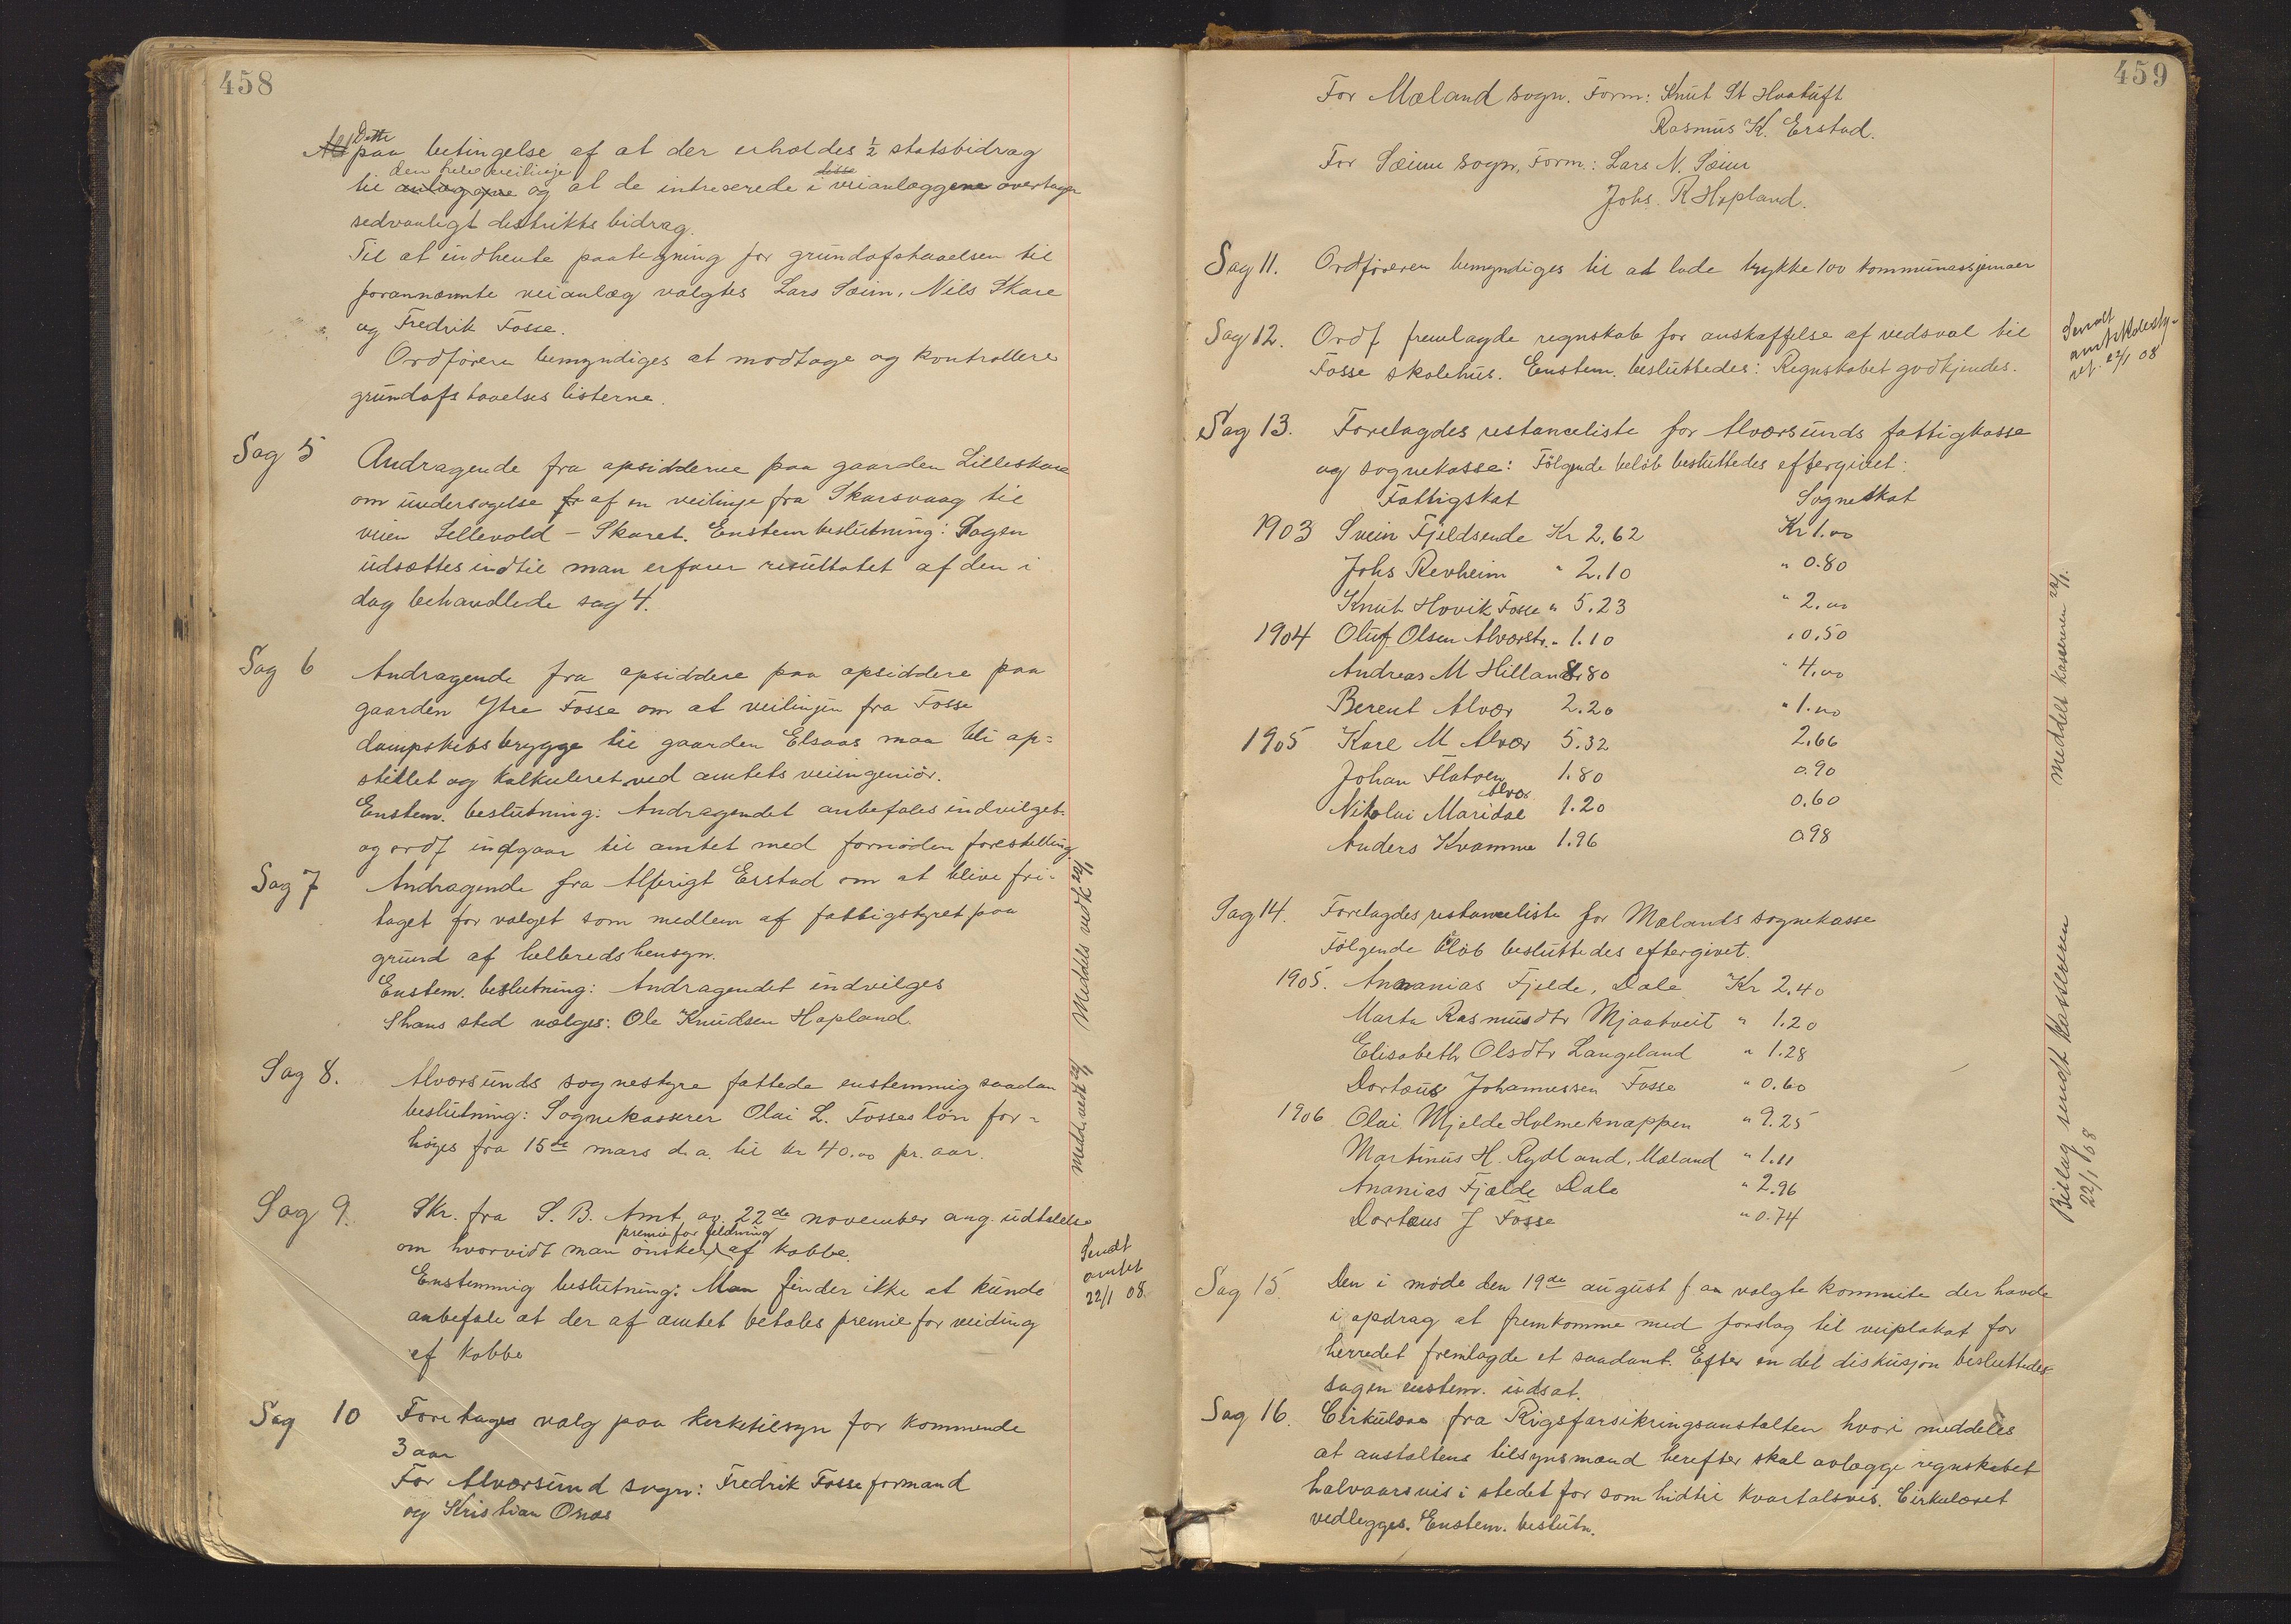 458
Dette
paa betingelse af at der erholdes ½ statsbidrag
den hele veilinje disse
til anlæggene og at de intreserede i veianlæggene overtager
sedvanligt distrikts bidrag.
Til at indhente paategning for grundafstaaelsen til
forannævnte veianlæg valgtes Lars Sæim, Nils Skare
og Fredrik Fosse.
Ordföreren bemyndiges at modtage og kontrollere
grundafstaaelses listerne.
Sag 5 Andragende fra opsidderne paa gaarden Lilleskare
om undersøgelse fr af en veilinje fra Skarsvaag til
veien Sellevold - Skaret. Enstem beslutning: Sagen
udsættes indtil man erfarer resultatet af den i
dag behandlede sag 4.
Sag 6 Andragende fra opsiddere paa opsiddere paa
gaarden Ytre Fosse om at veilinjen fra Fosse
dampskibsbrygge til gaarden Elsaas maa bli op=
stillet og kalkuleret ved amtets veiingeniør.
Enstem. beslutning: Andragendet anbefales indvilget.
og ordf indgaar til amtet med fornöden forestilling
Sag 7 Andragende fra Alferigt Erstad om at blive fri-
taget for valget som medlem af fattigstyret paa
grund af helbredshensyn.
Enstem. beslutning: Andragendet indvilges
I hans sted vælges: Ole Knudsen Hopland.
Meddels vedk 22/1
Sag 8. Alversunds sognestyre fattede enstemmig saadan
beslutning: Sognekasserer Olai L. Fosses lön for-
höges fra 15de mars d.a. til kr 40.00 pr. aar.
medd. vedk 22/1
Sag 9. Skr. fra S. B. Amt av 22de november ang. udtalelse
premie for fældning
om hvorvidt man önsker af kobbe.
Enstemmig beslutning: Man finder ikke at kunde
anbefale at der af amtet betales premie for veiding
af kobbe
Sendt
amtet
22/1 08.
Sag 10 Foretages valg paa kirketilsyn for kommende
3 aar
For Alversund sogn: Fredrik Fosse formand
og Kristian Onæs
459
For Mæland sogn. Form: Knut St Hvatuft
Rasmus K. Erstad.
For Sæim sogn, Form.: Lars N. Sæim
Johs. R Hopland.
Sag 11. Ordföreren bemyndiges til at lade trykke 100 kommunasjemaer
Sag 12. Ordf. fremlagde regnskab for anskaffelse af vedsval til
Fosse skolehus. Enstem. besluttedes: Regnskabet godkjendes.
Sendt
amtskolesty-
ret. 22/1 08
Sag 13. Forelagdes restanceliste for Alversunds fattigkasse
og sognekasse: Fölgende belöb besluttedes eftergivet:
Fattigskat Sogneskat
1903 Svein Fjeldsende Kr 2.62 Kr 1.00
Johs Revheim " 2.10 " 0.80
Knut Hovik Fosse " 5.23 " 2.00
1904 Oluf Olsen Alverstr. " 1.10 " 0.50
Andreas M Hilland 8.80 " 4.00
Berent Alver 2.20 " 1.00
1905 Karl M Alver 5.32 2.66
Johan Flatøen 1.80 0.90
Alver
Nikolai Maridal 1.20 0.60
Anders Kvamme 1.96 0.98
meddelt kassereren 22/1.
Sag 14. Forelagdes restanceliste for Mælands sognekasse
Fölgende belöb besluttedes eftergivet.
1905. Ananias Fjelde, Dale Kr 2.40
Marta Rasmusdtr Mjaatveit " 1.20
Elisabeth Olsdtr Langeland " 1.28
Dortæus Johannessen Fosse " 0.60
1906 Olai Mjelde Holmeknappen " 9.25
Martinus H. Rydland, Mæland " 1.11
Ananias Fjælde Dale " 2.96
Dortæus J Fosse " 0.74
Billag sendt kassereren
22/1 08
Sag 15. Den i møde den 19de august f. aa valgte kommite der havde
i opdrag at fremkomme med forslag til veiplakat for
herredet fremlagde et saadant. Efter en del diskusjon besluttedes
sagen enstem. udsat.
Sag 16. Cirkulære fra Rigsforsikringsanstalten hvori meddeles
at anstaltens tilsynsmænd herefter skal avlægge regnskabet
halvaarsvis i stedet for som hidtil kvartalsvis. Cirkulæret
vedlegges. Enstem. beslutn.